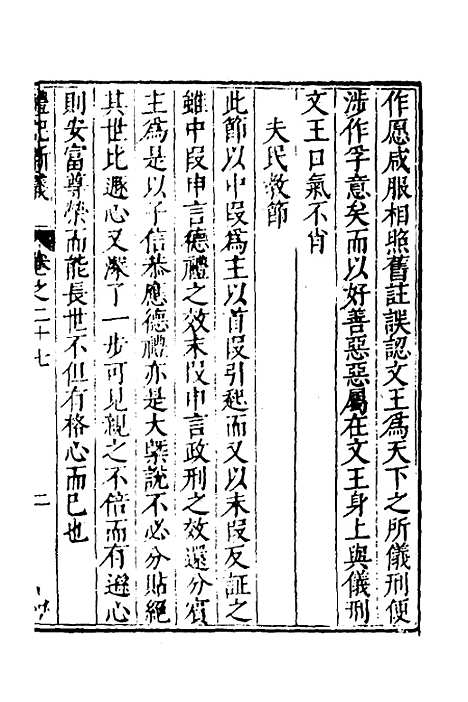 作愿咸服相照舊註誤認文王爲天下之所儀刑便
涉作孚意矣而以好善惡惡屬在文王身上與儀刑
文王口氣不肖
夫民教節
此節以中段爲主以首段引起而又以末段反証之
雖中段申言德禮之效末段申言政刑之效還分賓
主爲是以子信恭應德禮亦是大槩說不必分貼絕
其世比遯心又深了一步可見親之不倍而有遜心
則安富尊榮而能長世不但有格心而已也
禮記新義
卷之二十七
二